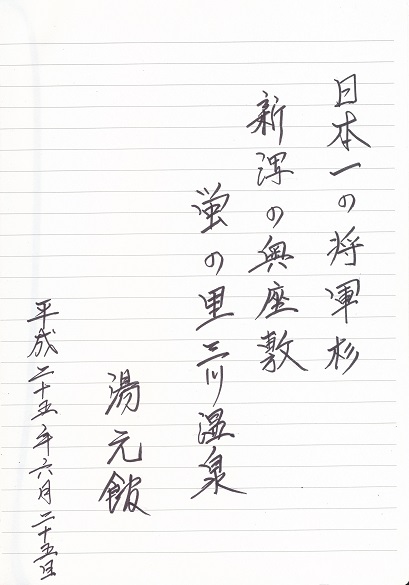 日本一の将軍杉
新潟の奥座敷
蛍の里三川温泉
湯元館
平成二十五年六月二十五日